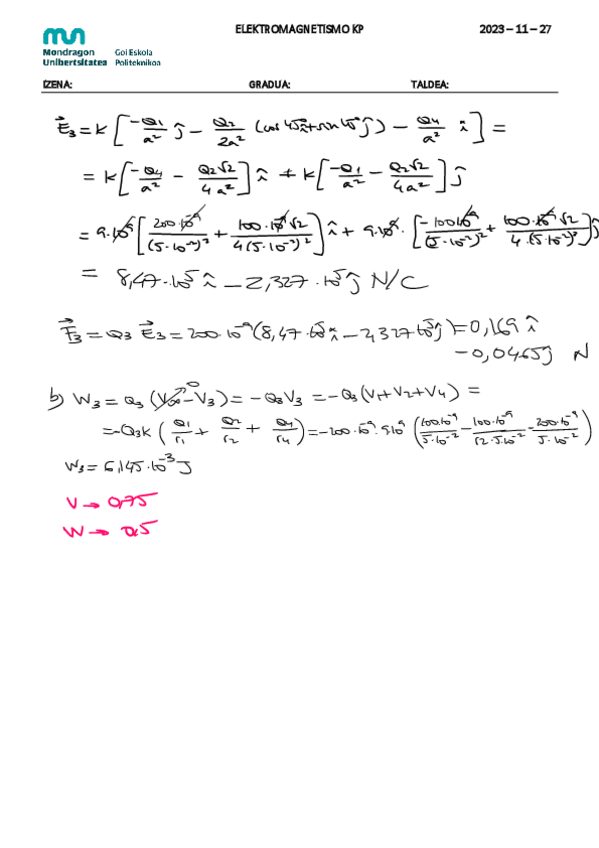 ELEKTROMAGNETISMO KP 2023–11–27
Mondragon Unibertsitatea Goi Eskola Politeknikoa
IZENA: GRADUA: TALDEA:
E⃗₃ = K [ -Q₁/a² ĵ - Q₂/2a² (cos 45 î + sin 45 ĵ) - Q₄/a² î ] =
= K [ -Q₄/a² - Q₂√2/4a² ] î + K [ -Q₁/a² - Q₂√2/4a² ] ĵ
= 9·10⁹ [ 200·10⁻⁹/(5·10⁻²)² + 100·10⁻⁹√2/4(5·10⁻²)² ] î + 9·10⁹ · [ -100·10⁻⁹/(5·10⁻²)² + 100·10⁻⁹√2/4·(5·10⁻²)² ] ĵ
= 8,47·10⁵ î - 2,327·10⁵ ĵ N/C
F⃗₃ = Q₃ E⃗₃ = 200·10⁻⁹ (8,47·10⁵ î - 2,327·10⁵ ĵ) = 0,169 î
- 0,0465 ĵ N
b) W₃ = Q₃ (V∞⁰ - V₃) = -Q₃V₃ = -Q₃ (V₁ + V₂ + V₄) =
= -Q₃K ( Q₁/r₁ + Q₂/r₂ + Q₄/r₄ ) = -200·10⁻⁹·9·10⁹ ( 100·10⁻⁹/5·10⁻² - 100·10⁻⁹/√2·5·10⁻² - 200·10⁻⁹/5·10⁻² )
W₃ = 6,145·10⁻³ J
V → 0,75
W → 0,5